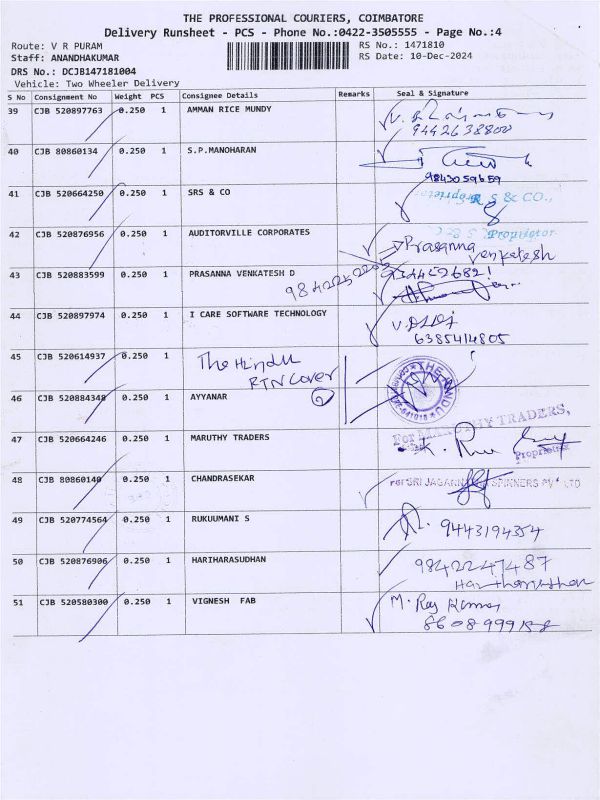 THE PROFESSIONAL COURIERS, COIMBATORE
Delivery Runsheet - PCS - Phone No.:0422-3505555 - Page No.:4
Route: V R PURAM
RS No.: 1471810
Staff: ANANDHAKUMAR
RS Date: 10-Dec-2024
DRS No.: DCJB147181004
Vehicle: Two Wheeler Delivery
S No Consignment No Weight PCS Consignee Details Remarks Seal & Signature
39 CJB 520897763 0.250 1 AMMAN RICE MUNDY
9442638800
40 CJB 80860134 0.250 1 S.P.MANOHARAN
9843059659
41 CJB 520664250 0.250 1 SRS & CO
R S & CO.,
Proprietor
42 CJB 520876956 0.250 1 AUDITORVILLE CORPORATES
Prasanna
Venkatesh
43 CJB 520883599 0.250 1 PRASANNA VENKATESH D
44 CJB 520897974 0.250 1 I CARE SOFTWARE TECHNOLOGY
6385414805
45 CJB 520614937 0.250 1 The Hindu
RTN Cover
2
THE HINDU
46 CJB 520884348 0.250 1 AYYANAR
47 CJB 520664246 0.250 1 MARUTHY TRADERS
For MARUTHY TRADERS,
Proprietor
48 CJB 80860140 0.250 1 CHANDRASEKAR
For SRI JAGANNATHA SPINNERS PVT LTD
49 CJB 520774564 0.250 1 RUKUUMANI S
9443194354
50 CJB 520876906 0.250 1 HARIHARASUDHAN
9842247487
51 CJB 520580300 0.250 1 VIGNESH FAB
M. Raj Kumar